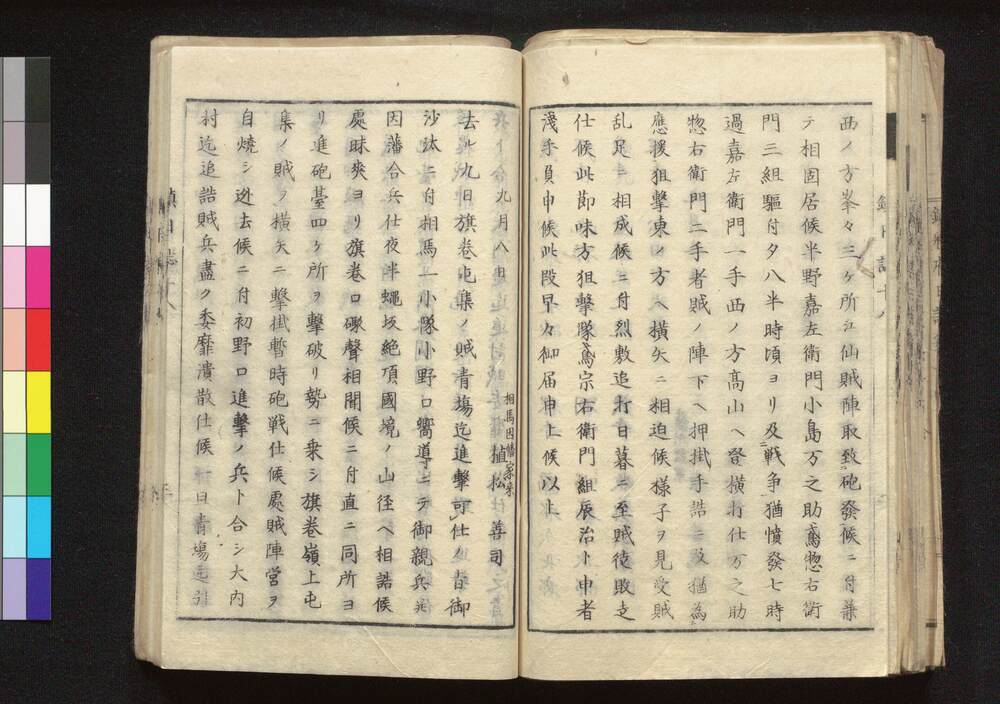 西ノ方峯々三ヶ所江仙賊陣取致砲發候ニ付兼
テ相固居候半野嘉左衛門小島万之助鳶惣右衛
門三組驅付夕八半時頃ヨリ及戦争猶憤發七時
過嘉左衛門一手西ノ方髙山ヘ登横打仕万之助
惣右衛門二手者賊ノ陣下ヘ押掛手詰ニ及猶為
應援狙撃東ノ方ヘ横矢ニ相迫候様子ヲ見受賊
乱足ニ相成候ニ付烈敷追打日暮ニ至賊徒敗走
仕候此節味方狙撃隊鳶宗右衛門組辰治ト申者
淺手負申候此段早々御届申上候以上
九月八日
相馬因幡家来
植松善司
去ル九日旗卷屯集ノ賊青塲迄進擊可仕旨御
沙汰ニ付相馬一小隊小野口嚮導ニテ御親兵
因藩合兵仕夜半蠅坂絶頂國境ノ山径ヘ相詰候
處昧爽ヨリ旗卷口礮聲相聞候ニ付直ニ同所ヨ
リ進砲臺四ヶ所ヲ擊破リ勢ニ乗シ旗卷嶺上屯
集ノ賊ヲ横矢ニ擊掛暫時砲戦仕候處賊陣営ヲ
自燒シ迯去候ニ付初野口進擊ノ兵ト合シ大内
村迄追詰賊兵盡ク委靡潰散仕候一日青塲迄引